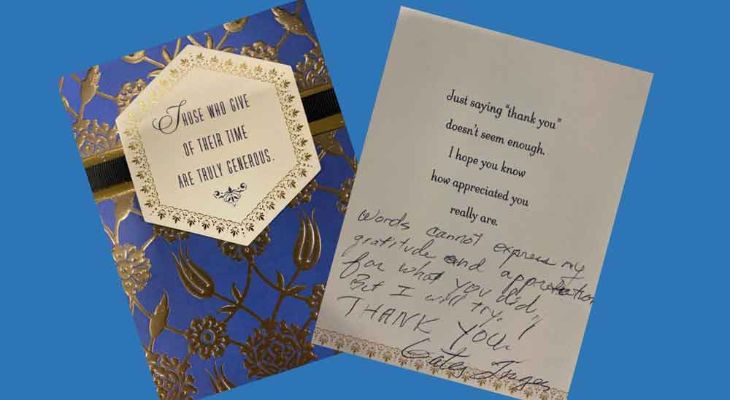 THOSE WHO GIVE
OF THEIR TIME
ARE TRULY GENEROUS.
Just saying "thank you"
doesn't seem enough.
I hope you know
how appreciated you
really are.
Words cannot express my
gratitude and appreciation
for what you did,
But I will try.
THANK YOU.